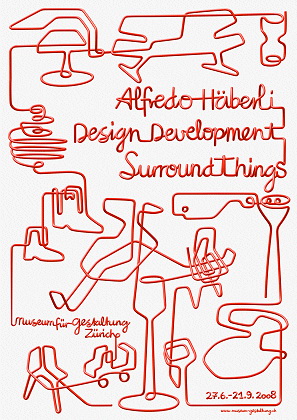 Alfredo Häberli
Design Development
SurroundThings
Museum für Gestaltung
Zürich
27.6.–21.9.2008
www.museum-gestaltung.ch